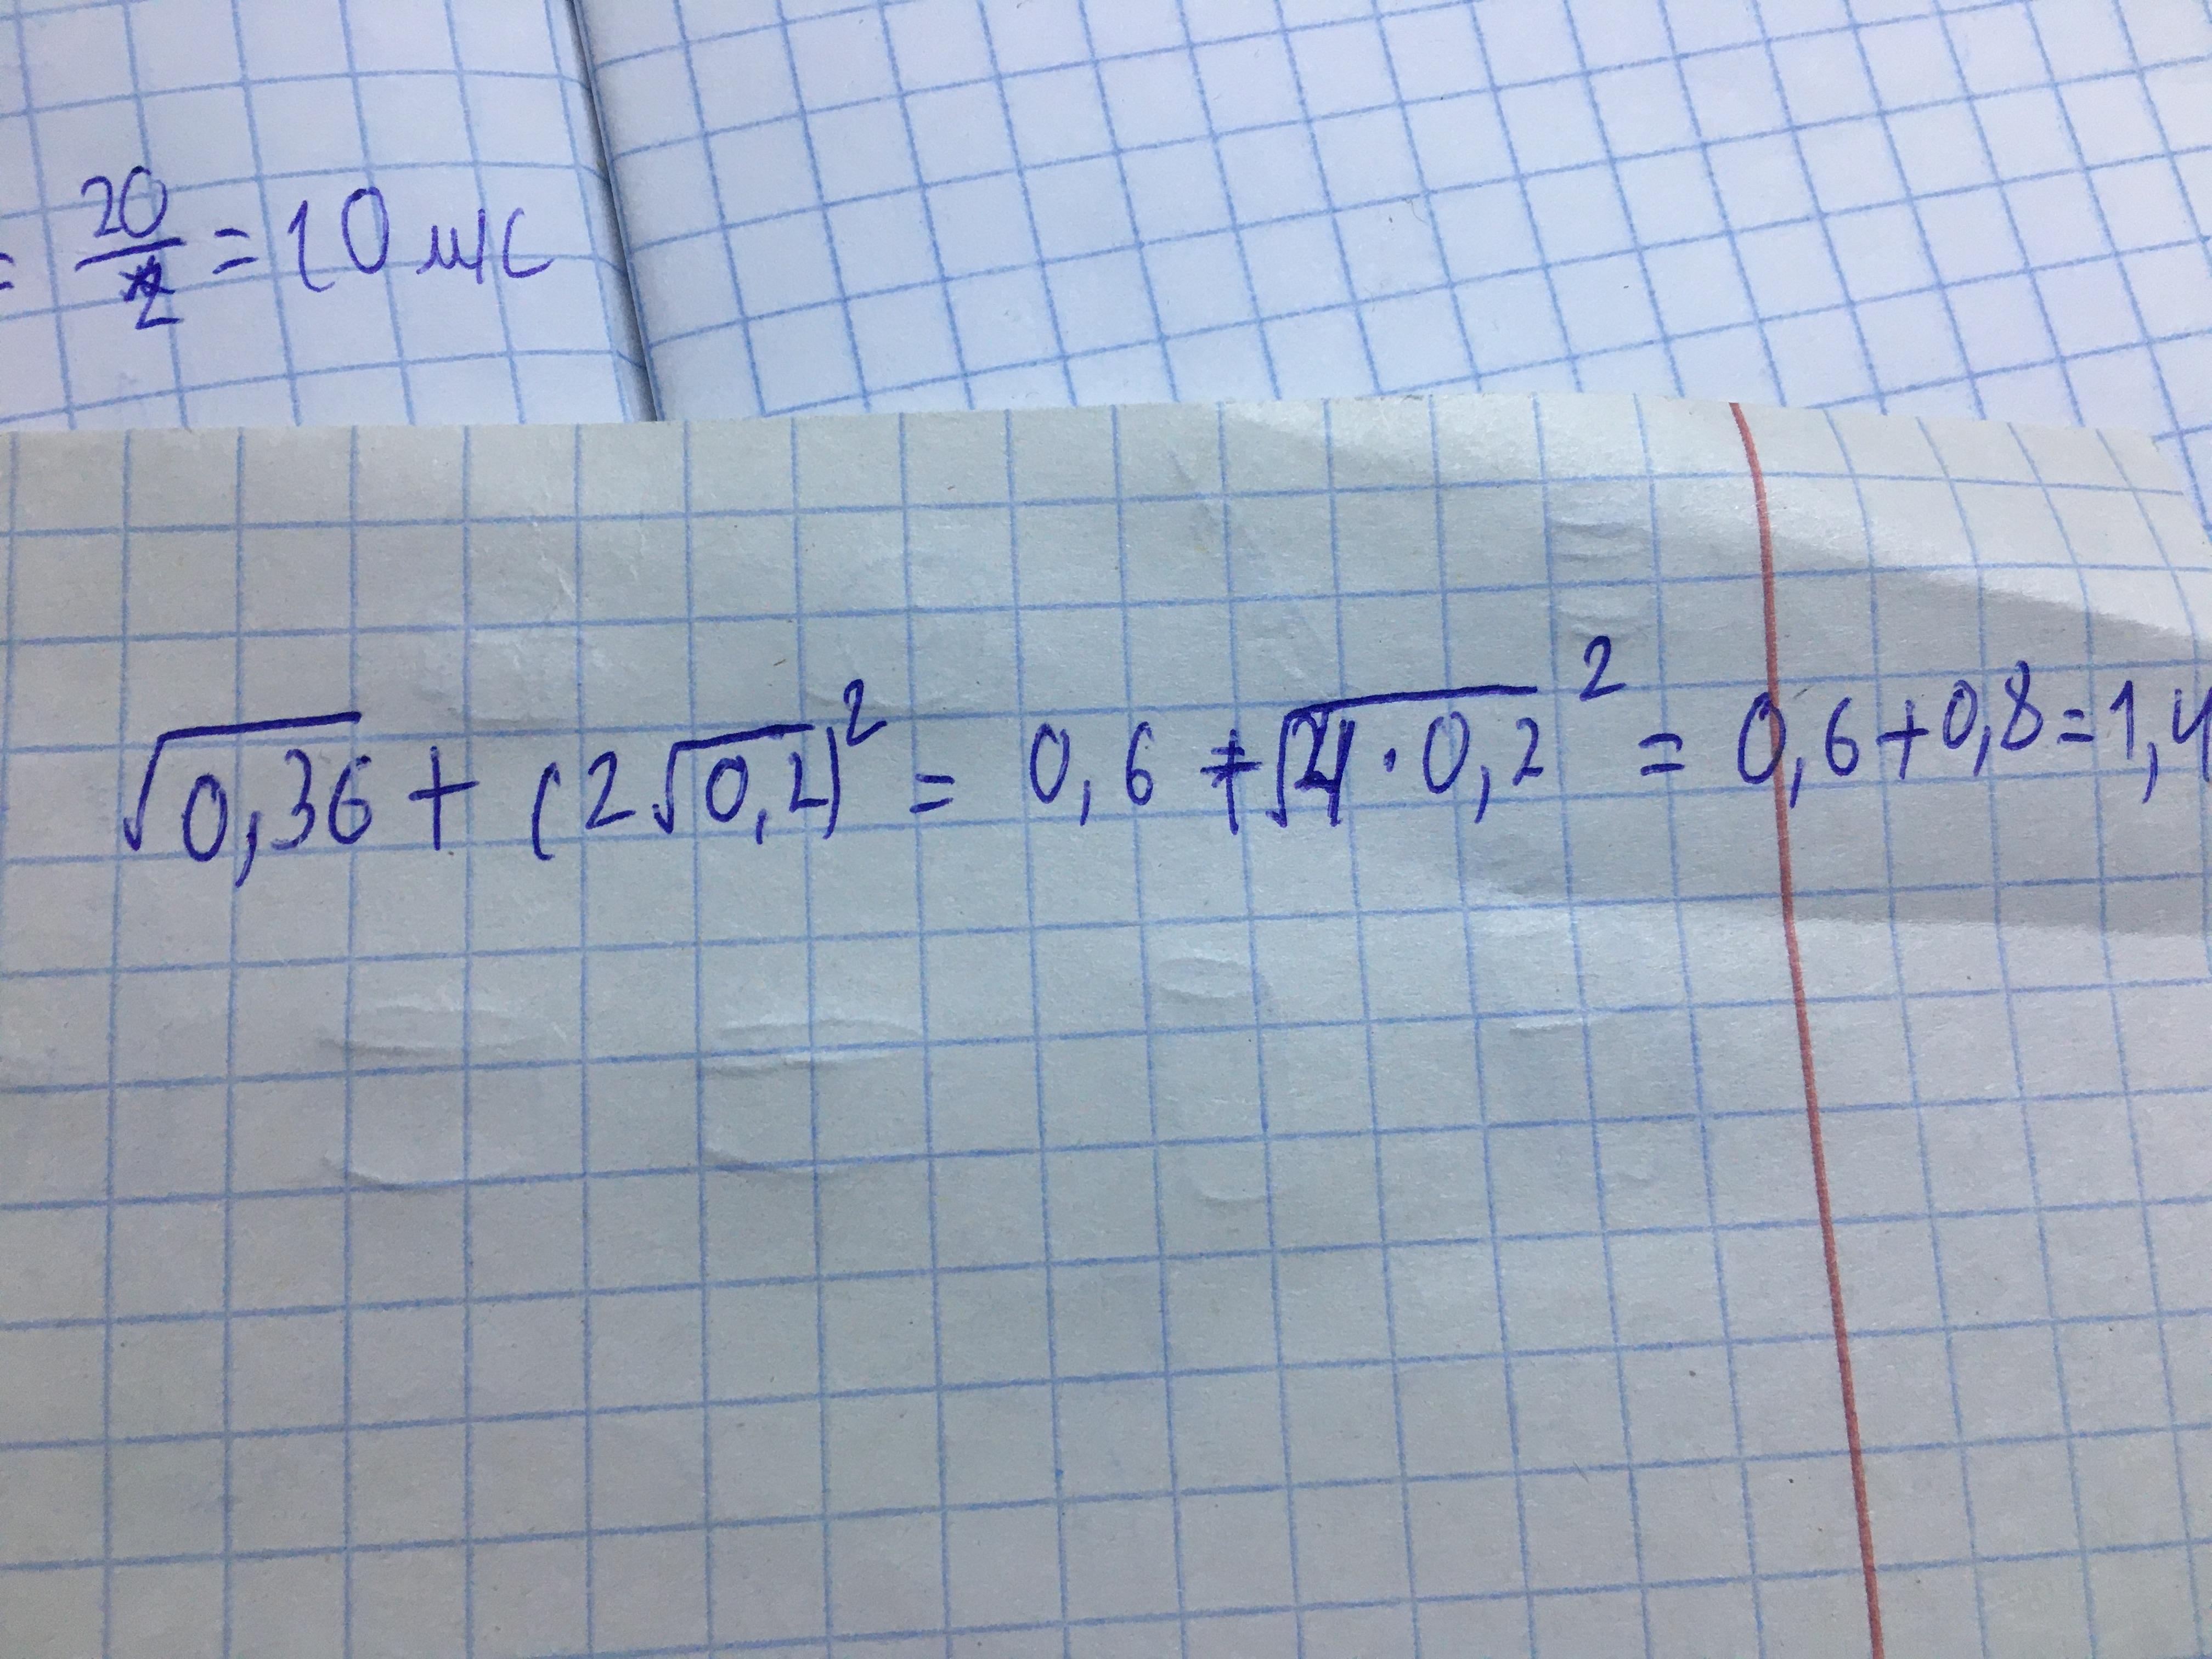 = 20/2 = 10 м/с
√0,36 + (2√0,2)² = 0,6 + √4·0,2² = 0,6+0,8=1,4